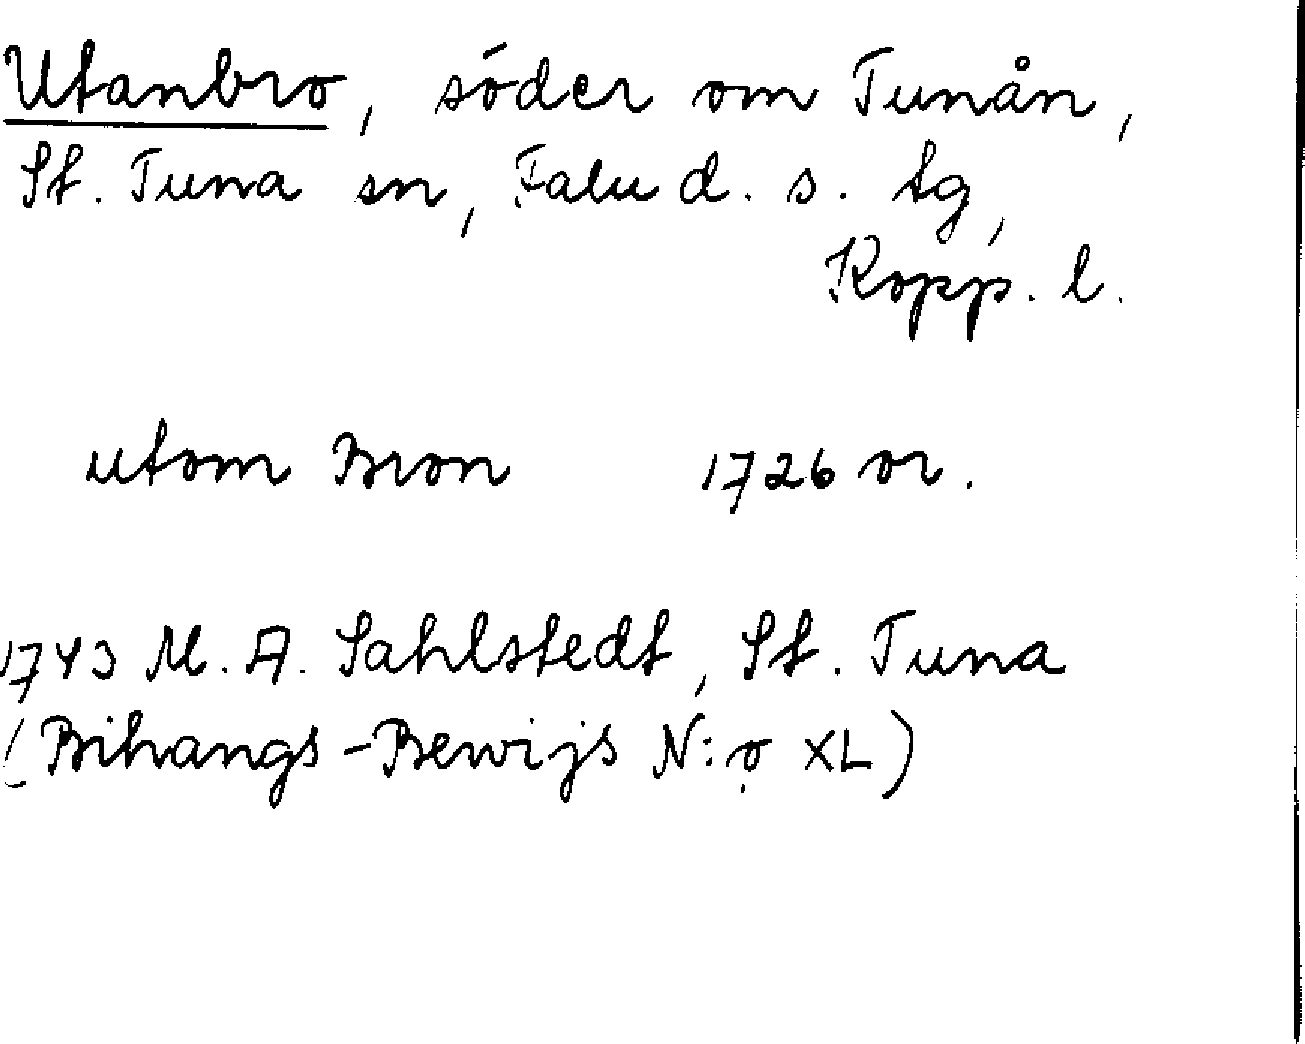 Utanbro, söder om Tunån,
St. Tuna sn, Falu d. s. tg,
Kopp. l.
utom Bron 1726 or.
1743 M. A. Sahlstedt, St. Tuna
(Bihangs-Bewijs N:o XL)